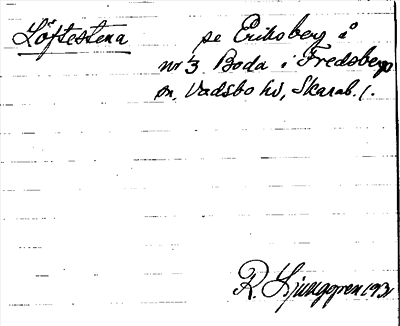 Löftestena se Eriksberg å
nr 3 Boda i Fredsberg
sn, Vadsbo hd, Skarab. l.
R. Ljunggren 1931